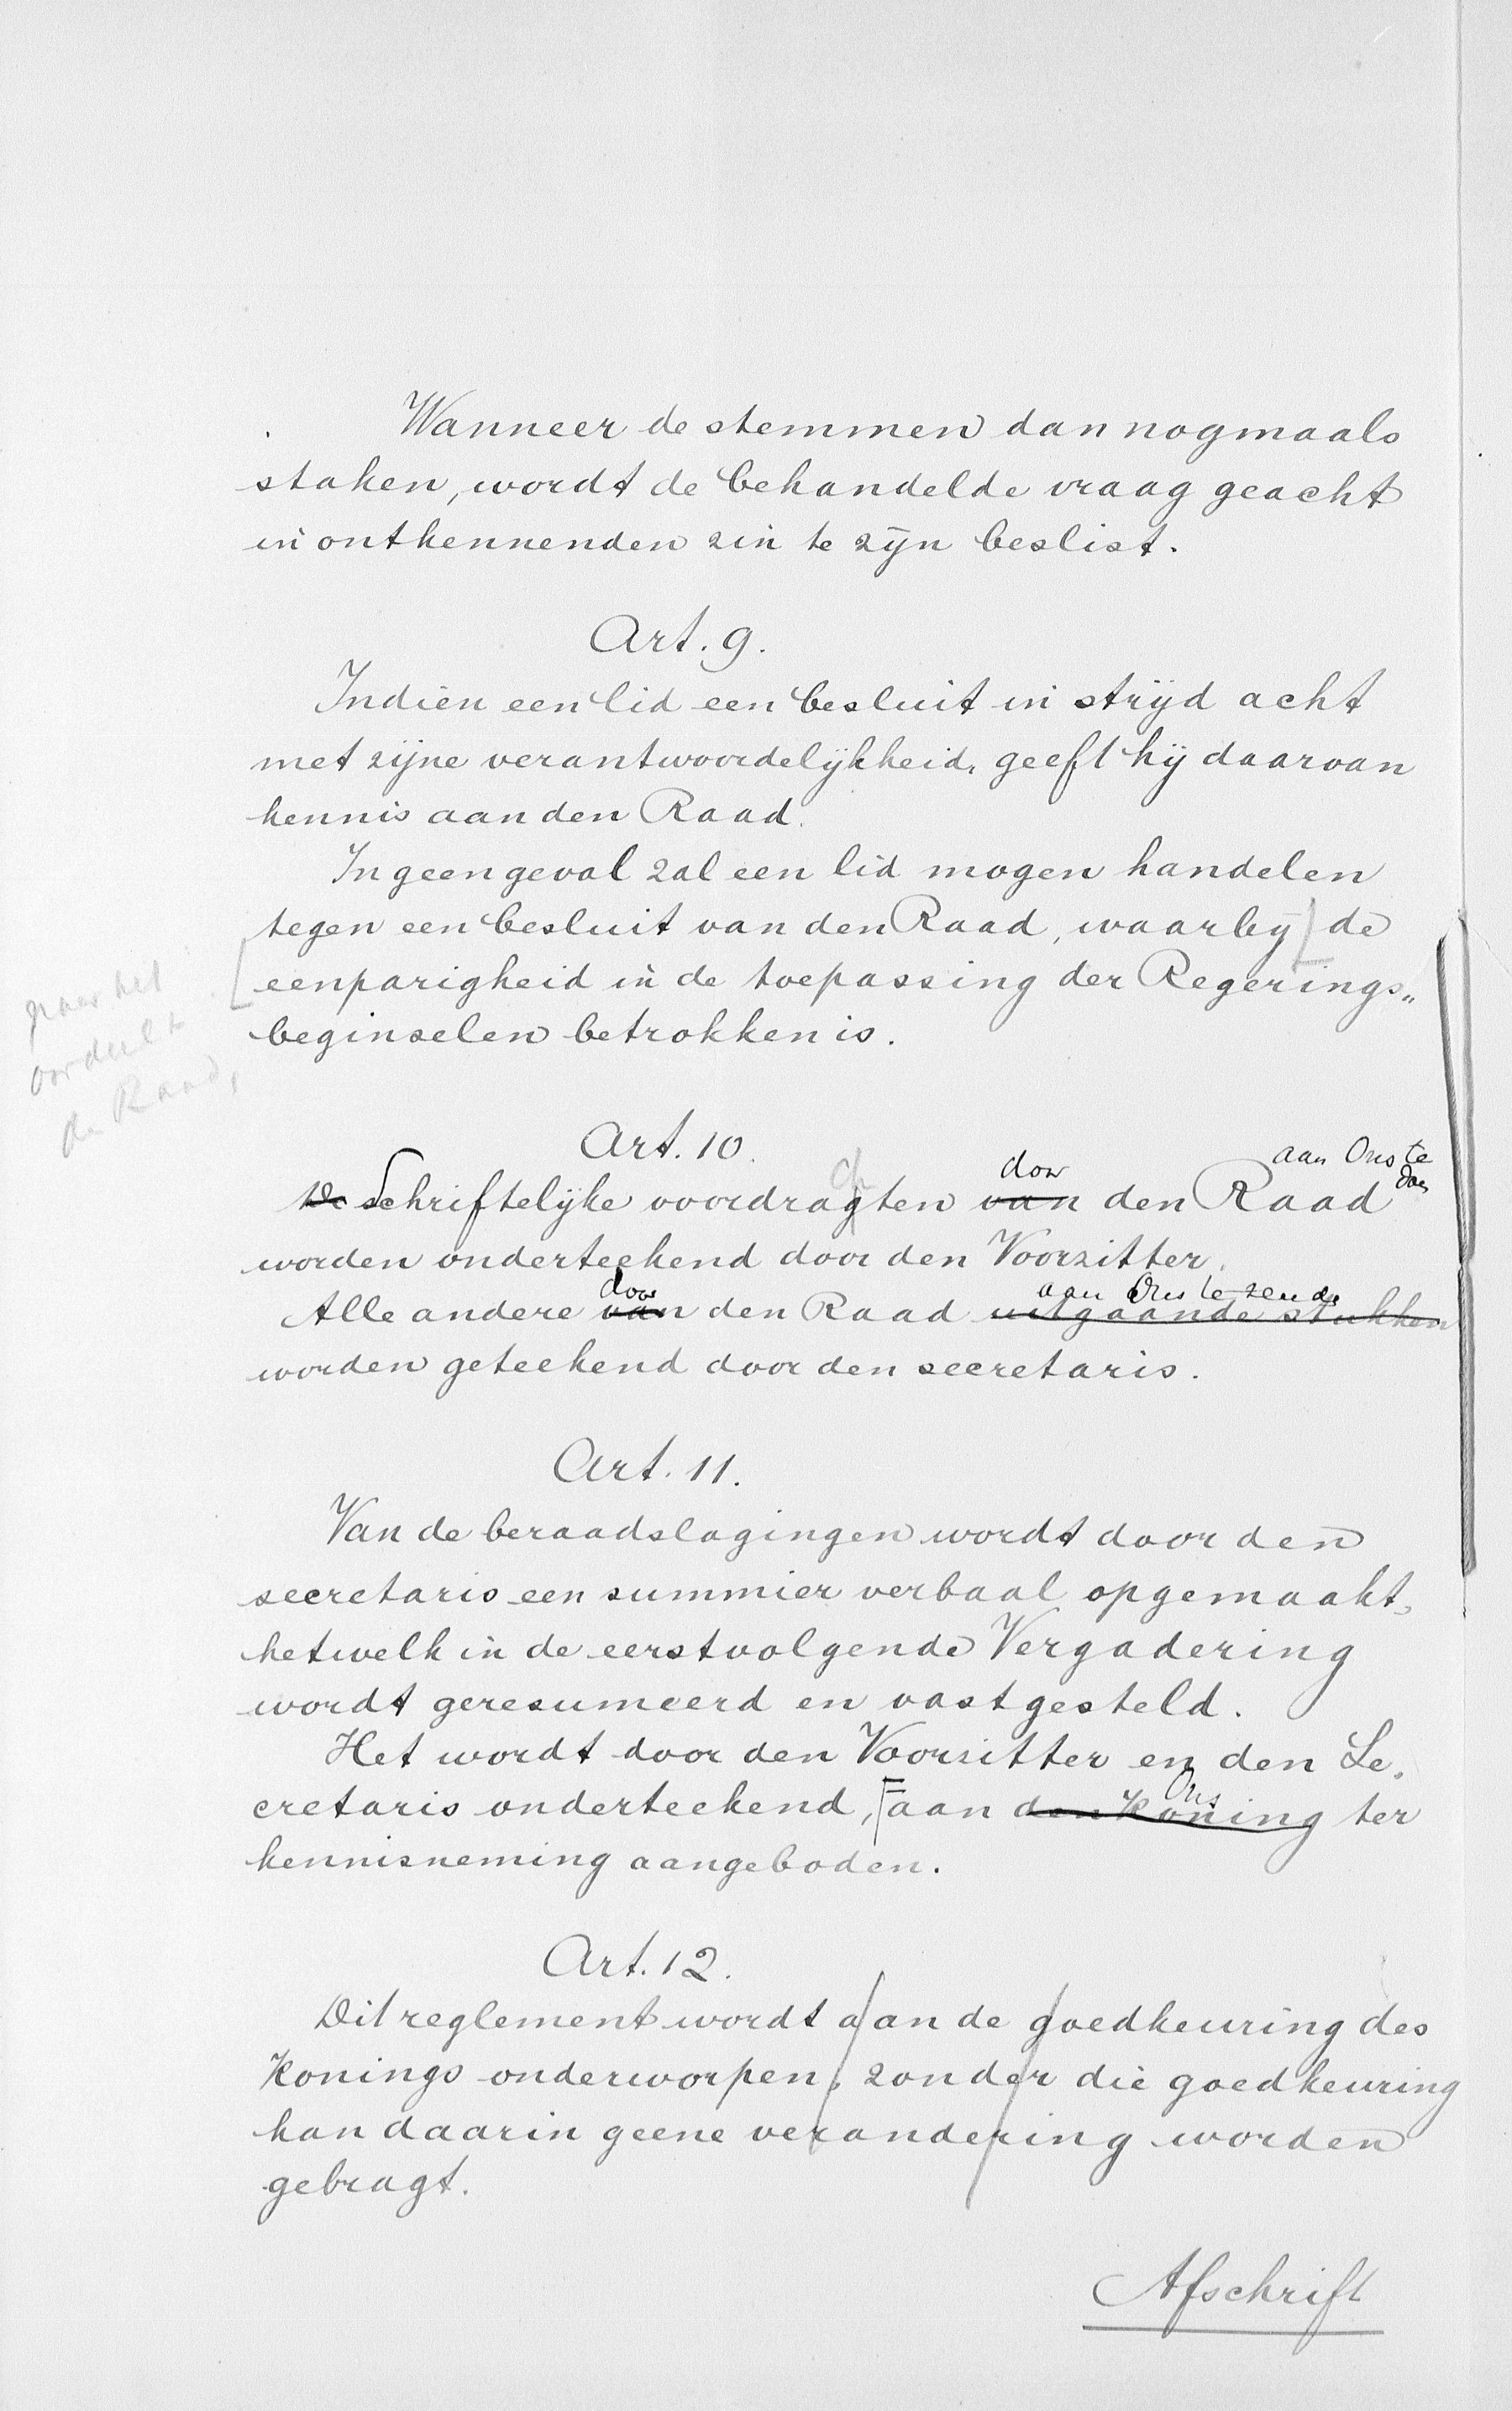 Wanneer de stemmen dan nogmaals
staken, wordt de behandelde vraag geacht
in ontkennenden zin te zijn beslist.
Art. 9.
Indien een lid een besluit in strijd acht
met zijne verantwoordelijkheid, geeft hij daarvan
kennis aan den Raad.
In geen geval zal een lid mogen handelen
tegen een besluit van den Raad, waarbij de
eenparigheid in de toepassing der Regerings„
beginselen betrokken is.
naar het
oordeel v
den Raad,
Art. 10.
aan Ons te
door doen
De Schriftelijke voordragten van den Raad
ch
worden onderteekend door den Voorzitter.
door aan Ons te zenden
Alle andere van den Raad uitgaande stukken
worden geteekend door den secretaris.
Art. 11.
Van de beraadslagingen wordt door den
secretaris een summier verbaal opgemaakt,
hetwelk in de eerstvolgende Vergadering
wordt geresumeerd en vastgesteld.
Het wordt door den Voorzitter en den Se„
Ons
cretaris onderteekend, aan den Koning ter
kennisneming aangeboden.
Art. 12.
Dit reglement wordt aan de goedkeuring des
Konings onderworpen; zonder die goedkeuring
kan daarin geene verandering worden
gebragt.
Afschrift